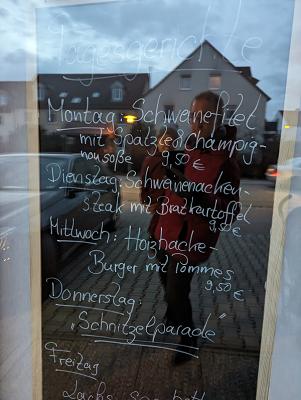 Tagesgerichte
Montag: Schweinefilet
mit Spätzle & Champig-
nonsoße 9,50 €
Dienstag: Schweinenacken-
steak mit Bratkartoffel
9,50 €
Mittwoch: Holzhacke-
Burger mit Pommes
9,50 €
Donnerstag:
"Schnitzelparade"
Freitag